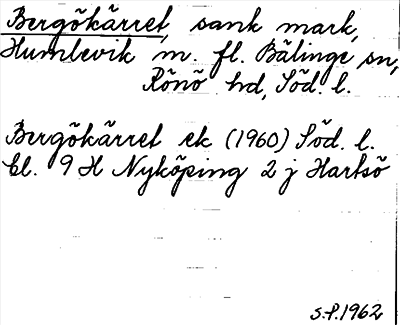 Bergökärret, sank mark,
Humlevik m. fl. Bälinge sn,
Rönö hd, Söd. l.
Bergökärret ek (1960) Söd. l.
bl. 9 H Nyköping 2 j Hartsö
S.P.1962